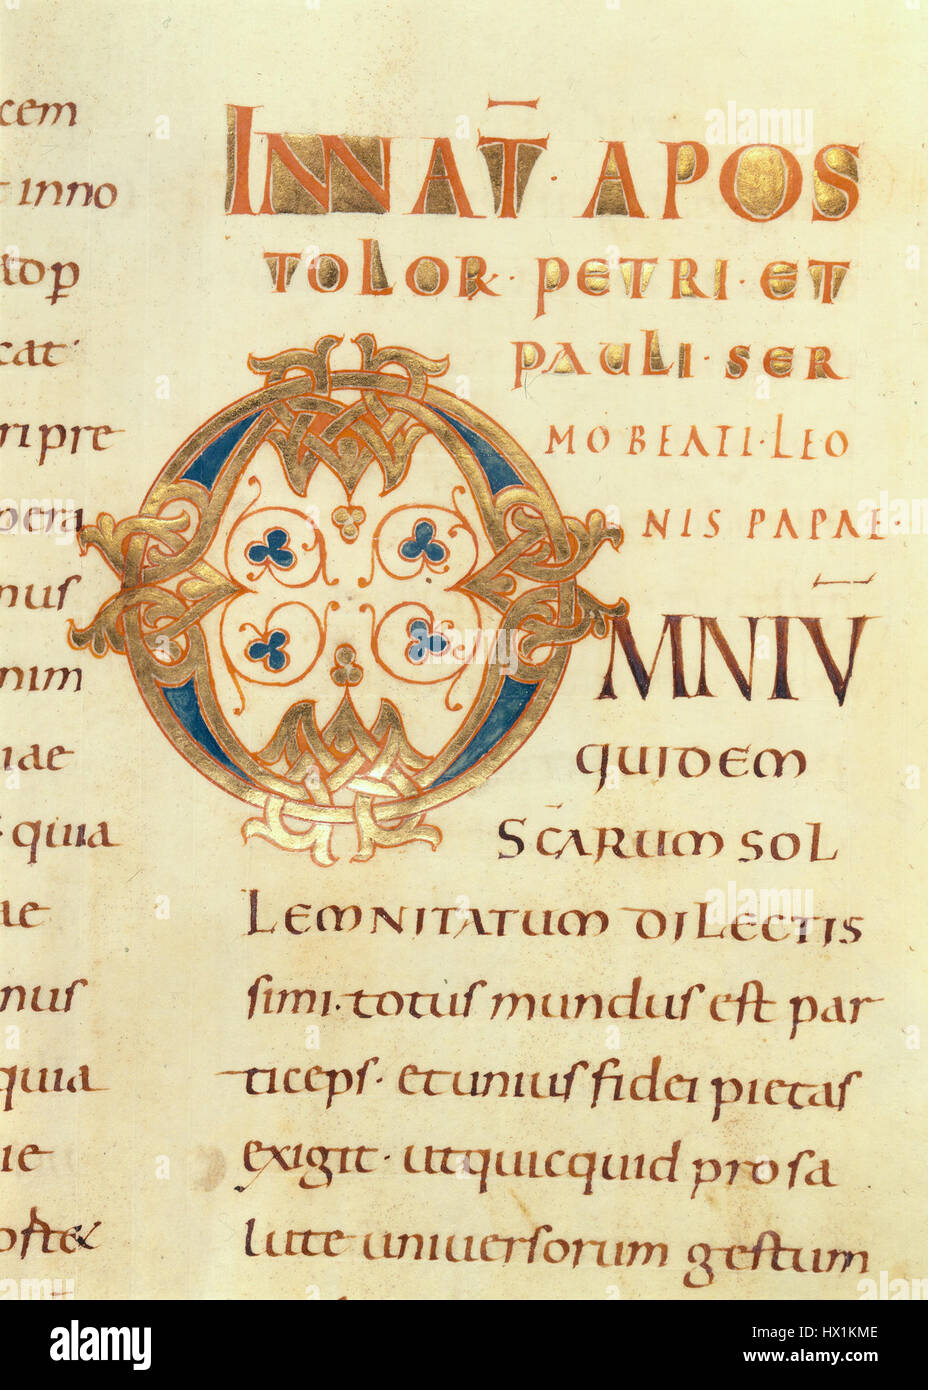 cem
t inno
top̄
cat·
ri pre
pera
nus
nim
iae
quia
ae
nus
quia
ie
oſtex
INNAT̄·APOS
TOLOR·PETRI·ET
PAULI·SER
MO BEATI·LEO
NIS PAPAE·
OMNIŪ
QUIDEM
SC̄ARUM SOL
LEMNITATUM DILECTIS
simi·totus mundus est par
ticeps·et unius fidei pietas
exigit·ut quicquid pro sa
lute universorum gestum
alamy
Image ID: HX1KME
www.alamy.com